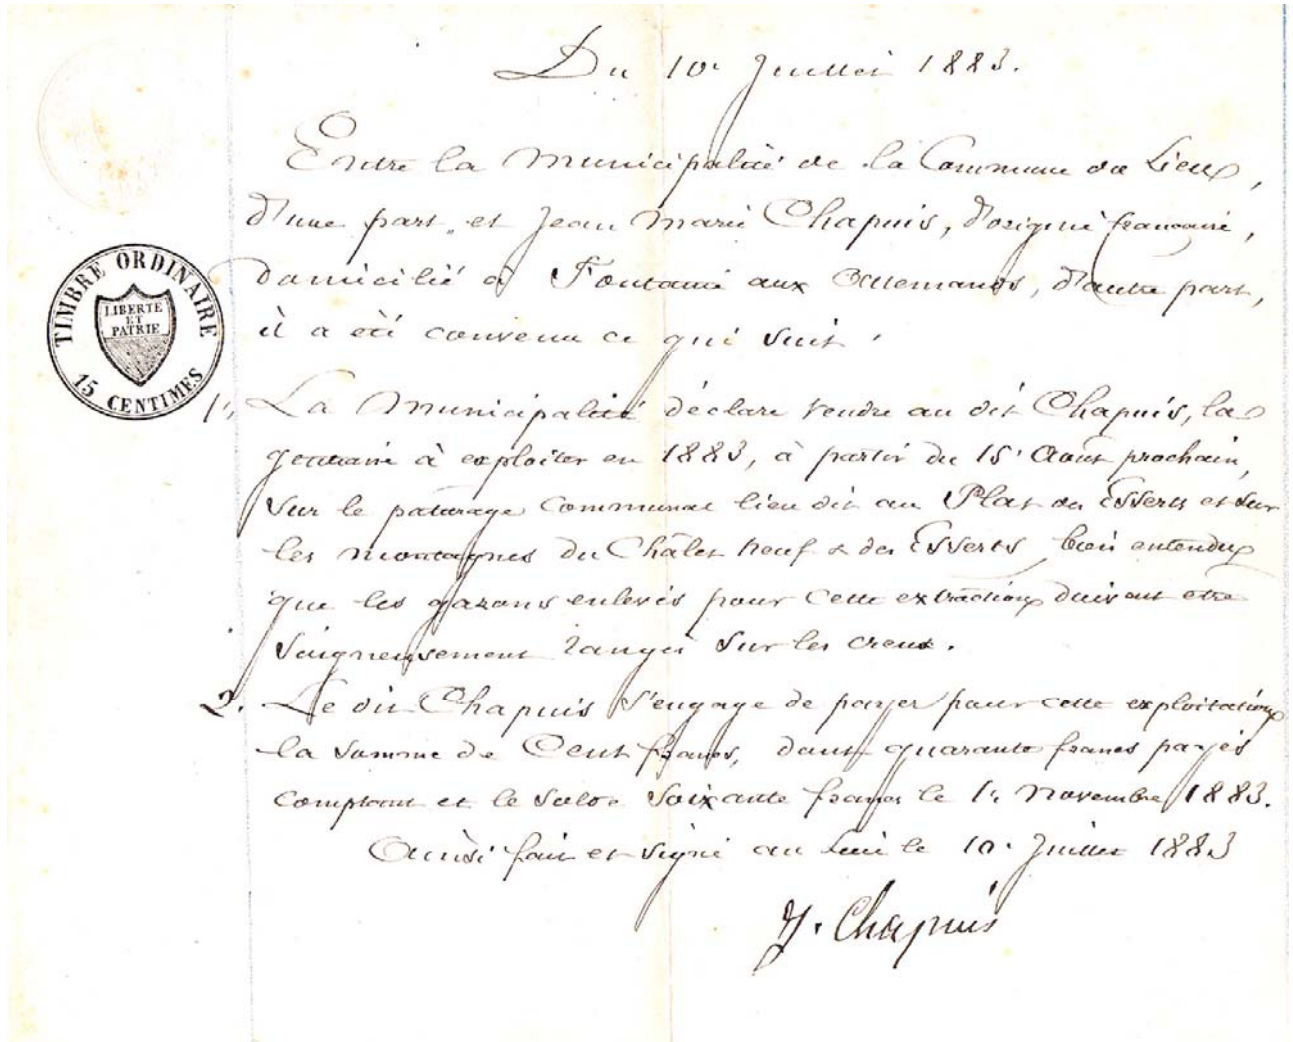 Du 10e Juillet 1883.
Entre la Municipalité de la Commune du Lieu,
d'une part, et Jean Marie Chapuis, d'origine française,
domicilié à Fontaine aux Allemands, d'autre part,
il a été convenu ce qui suit.
TIMBRE ORDINAIRE
LIBERTE
ET
PATRIE
15 CENTIMES
1° La Municipalité déclare vendre au dit Chapuis, la
gentiane à exploiter en 1883, à partir du 15e Août prochain,
sur le paturage Communal lieu dit au Plat des Esserts et sur
les montagnes du Châlet neuf & des Esserts, bien entendu
que les gazons enlevés pour cette extraction doivent etre
soigneusement rangés sur les creux.
2. Le dit Chapuis s'engage de payer pour cette exploitation
la somme de Cent francs, dont quarante francs payés
comptant et le solde soixante francs le 1er Novembre 1883.
Ainsi fait et signé au Lieu le 10e Juillet 1883
J. Chapuis